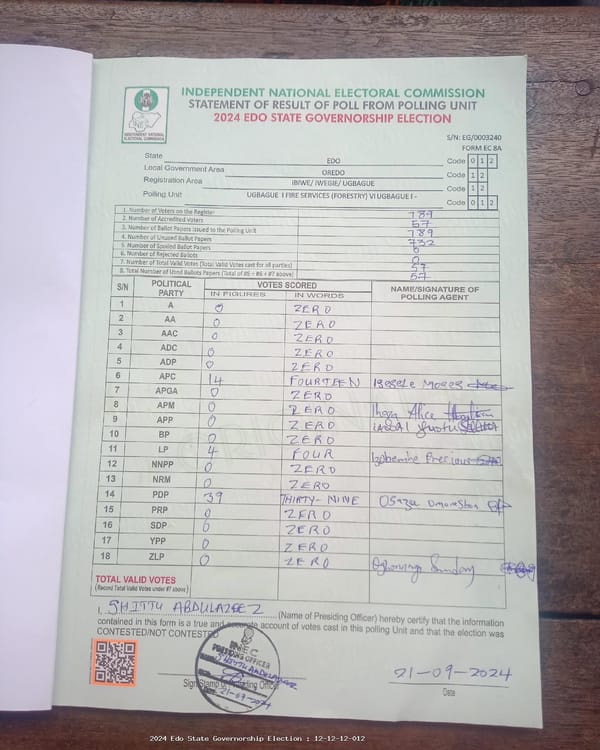 INDEPENDENT NATIONAL ELECTORAL COMMISSION
STATEMENT OF RESULT OF POLL FROM POLLING UNIT
2024 EDO STATE GOVERNORSHIP ELECTION
INDEPENDENT NATIONAL ELECTORAL COMMISSION
S/N: EG/0003240
FORM EC 8A
State EDO Code 0 1 2
Local Government Area OREDO Code 1 2
Registration Area IBIWE/ IWEGIE/ UGBAGUE Code 1 2
Polling Unit UGBAGUE I FIRE SERVICES (FORESTRY) VI UGBAGUE I - Code 0 1 2
1. Number of Voters on the Register 789
2. Number of Accredited Voters 57
3. Number of Ballot Papers Issued to the Polling Unit 789
4. Number of Unused Ballot Papers 732
5. Number of Spoiled Ballot Papers 0
6. Number of Rejected Ballots 0
7. Number of Total Valid Votes (Total Valid Votes cast for all parties) 57
8. Total Number of Used Ballots Papers (Total of #5 + #6 + #7 above) 57
S/N POLITICAL PARTY VOTES SCORED NAME/SIGNATURE OF POLLING AGENT
IN FIGURES IN WORDS
1 A 0 ZERO
2 AA 0 ZERO
3 AAC 0 ZERO
4 ADC 0 ZERO
5 ADP 0 ZERO
6 APC 14 FOURTEEN Moses
7 APGA 0 ZERO
8 APM 0 ZERO Alice
9 APP 0 ZERO
10 BP 0 ZERO
11 LP 4 FOUR Precious
12 NNPP 0 ZERO
13 NRM 0 ZERO
14 PDP 39 THIRTY-NINE Osaze
15 PRP 0 ZERO
16 SDP 0 ZERO
17 YPP 0 ZERO
18 ZLP 0 ZERO Sunday
TOTAL VALID VOTES
(Record Total Valid Votes under #7 above)
I, SHITTU ABDULAZEEZ (Name of Presiding Officer) hereby certify that the information
contained in this form is a true and accurate account of votes cast in this polling Unit and that the election was
CONTESTED/NOT CONTESTED
INEC
PRESIDING OFFICER
SHITTU ABDULAZEEZ
21-09-2024
Sign/Stamp of Presiding Officer
21-09-2024
Date
2024 Edo State Governorship Election : 12-12-12-012